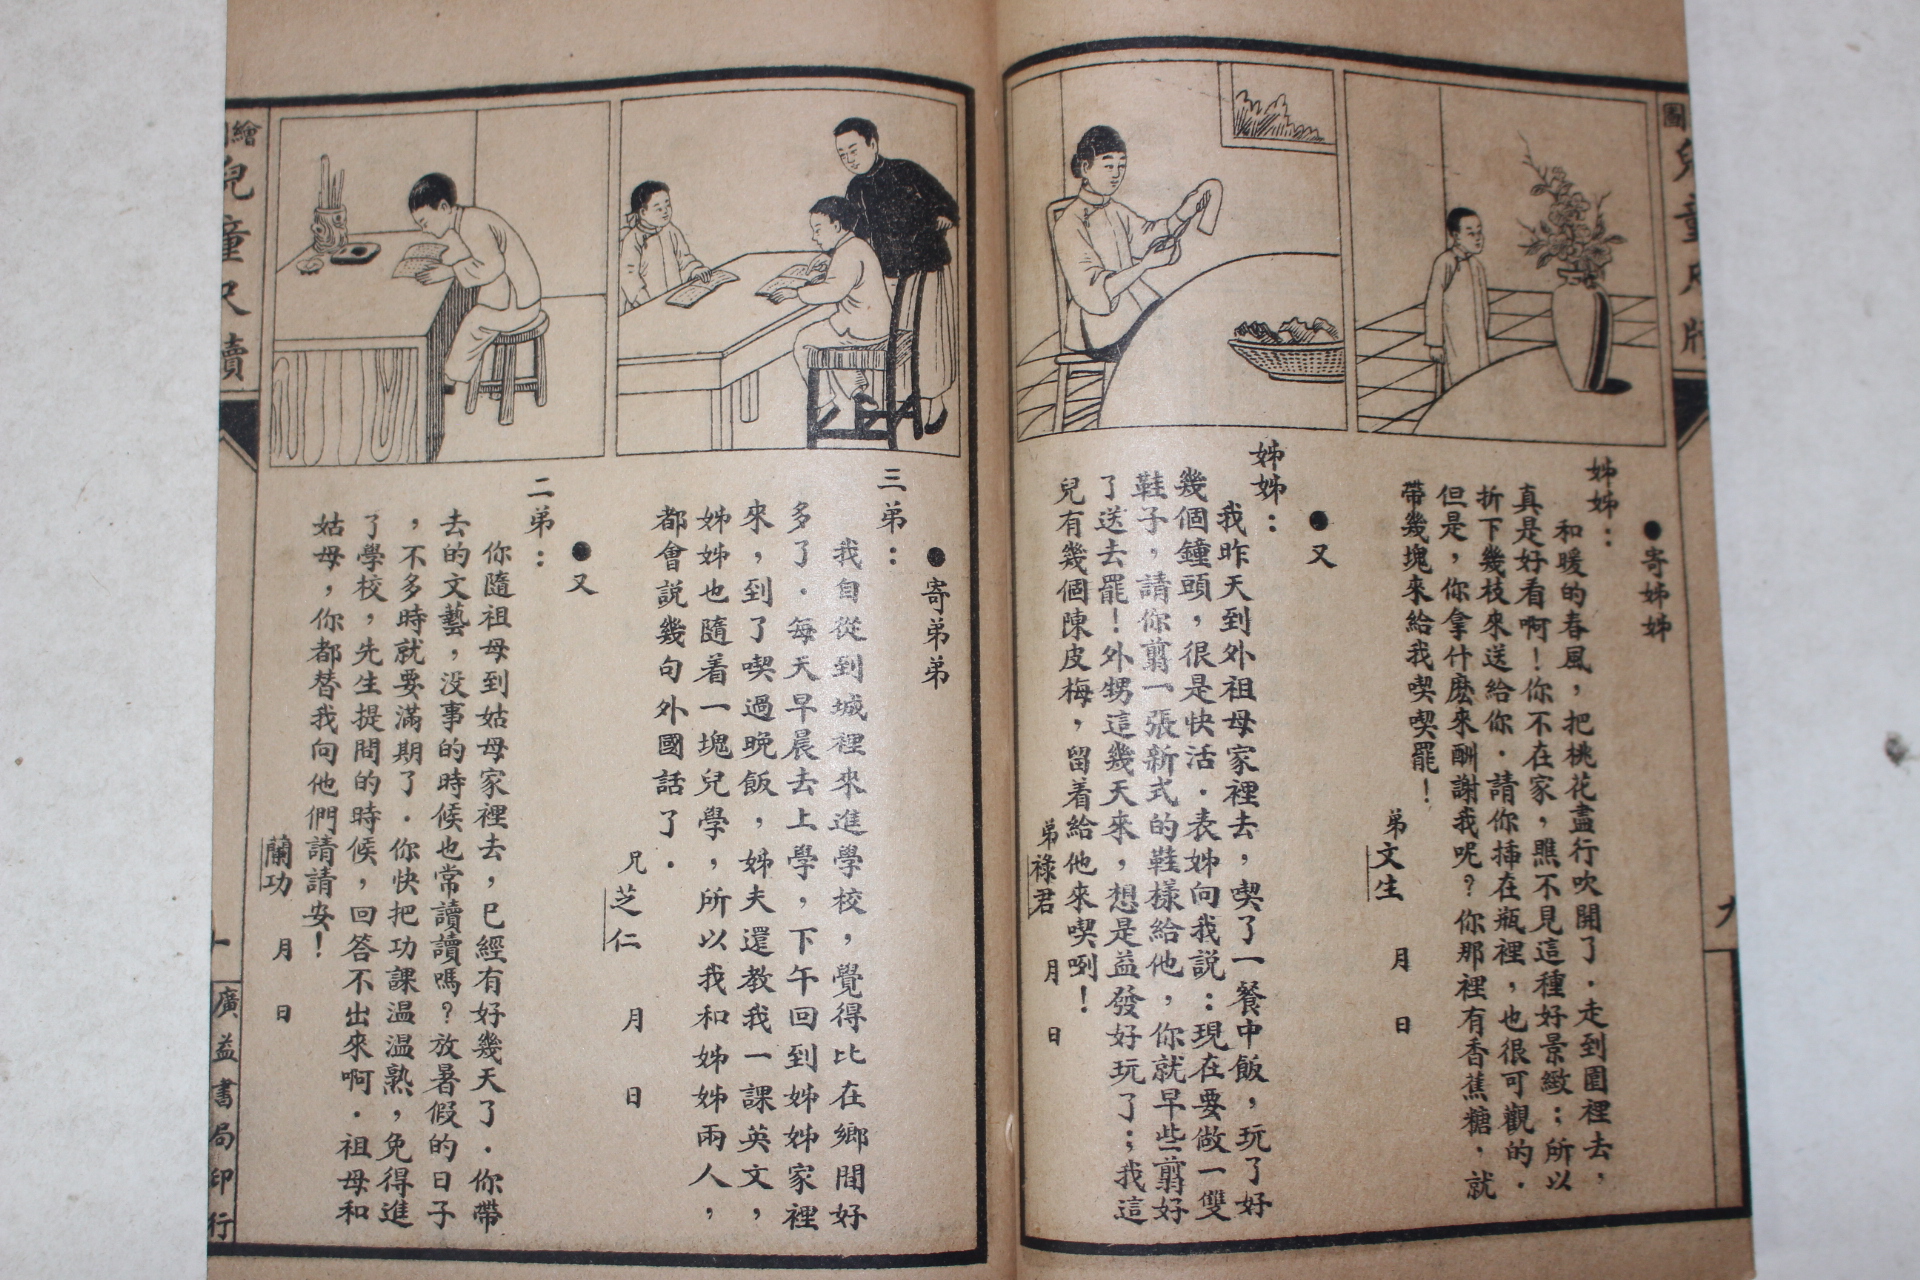 ●寄姊姊
姊姊：
和暖的春風，把桃花盡行吹開了．走到園裡去，
真是好看啊！你不在家，瞧不見這種好景緻；所以
折下幾枝來送給你．請你插在瓶裡，也很可觀的．
但是，你拿什麽來酬謝我呢？你那裡有香蕉糖，就
帶幾塊來給我喫喫罷！
弟文生　月　日
●又
姊姊：
我昨天到外祖母家裡去，喫了一餐中飯，玩了好
幾個鐘頭，很是快活．表姊向我説：現在要做一雙
鞋子，請你剪一張新式的鞋樣給他，你就早些剪好
了送去罷！外甥這幾天來，想是益發好玩了；我這
兒有幾個陳皮梅，留着給他來喫咧！
弟祿君　月　日
●寄弟弟
三弟：
我自從到城裡來進學校，覺得比在鄉間好
多了．每天早晨去上學，下午回到姊姊家裡
來，到了喫過晚飯，姊夫還教我一課英文，
姊姊也隨着一塊兒學，所以我和姊姊兩人，
都會説幾句外國話了．
兄芝仁　月　日
●又
二弟：
你隨祖母到姑母家裡去，已經有好幾天了．你帶
去的文藝，没事的時候也常讀讀嗎？放暑假的日子
，不多時就要滿期了．你快把功課温温熟，免得進
了學校，先生提問的時候，回答不出來啊．祖母和
姑母，你都替我向他們請請安！
蘭功　月　日
繪圖兒童尺牘
十
廣益書局印行